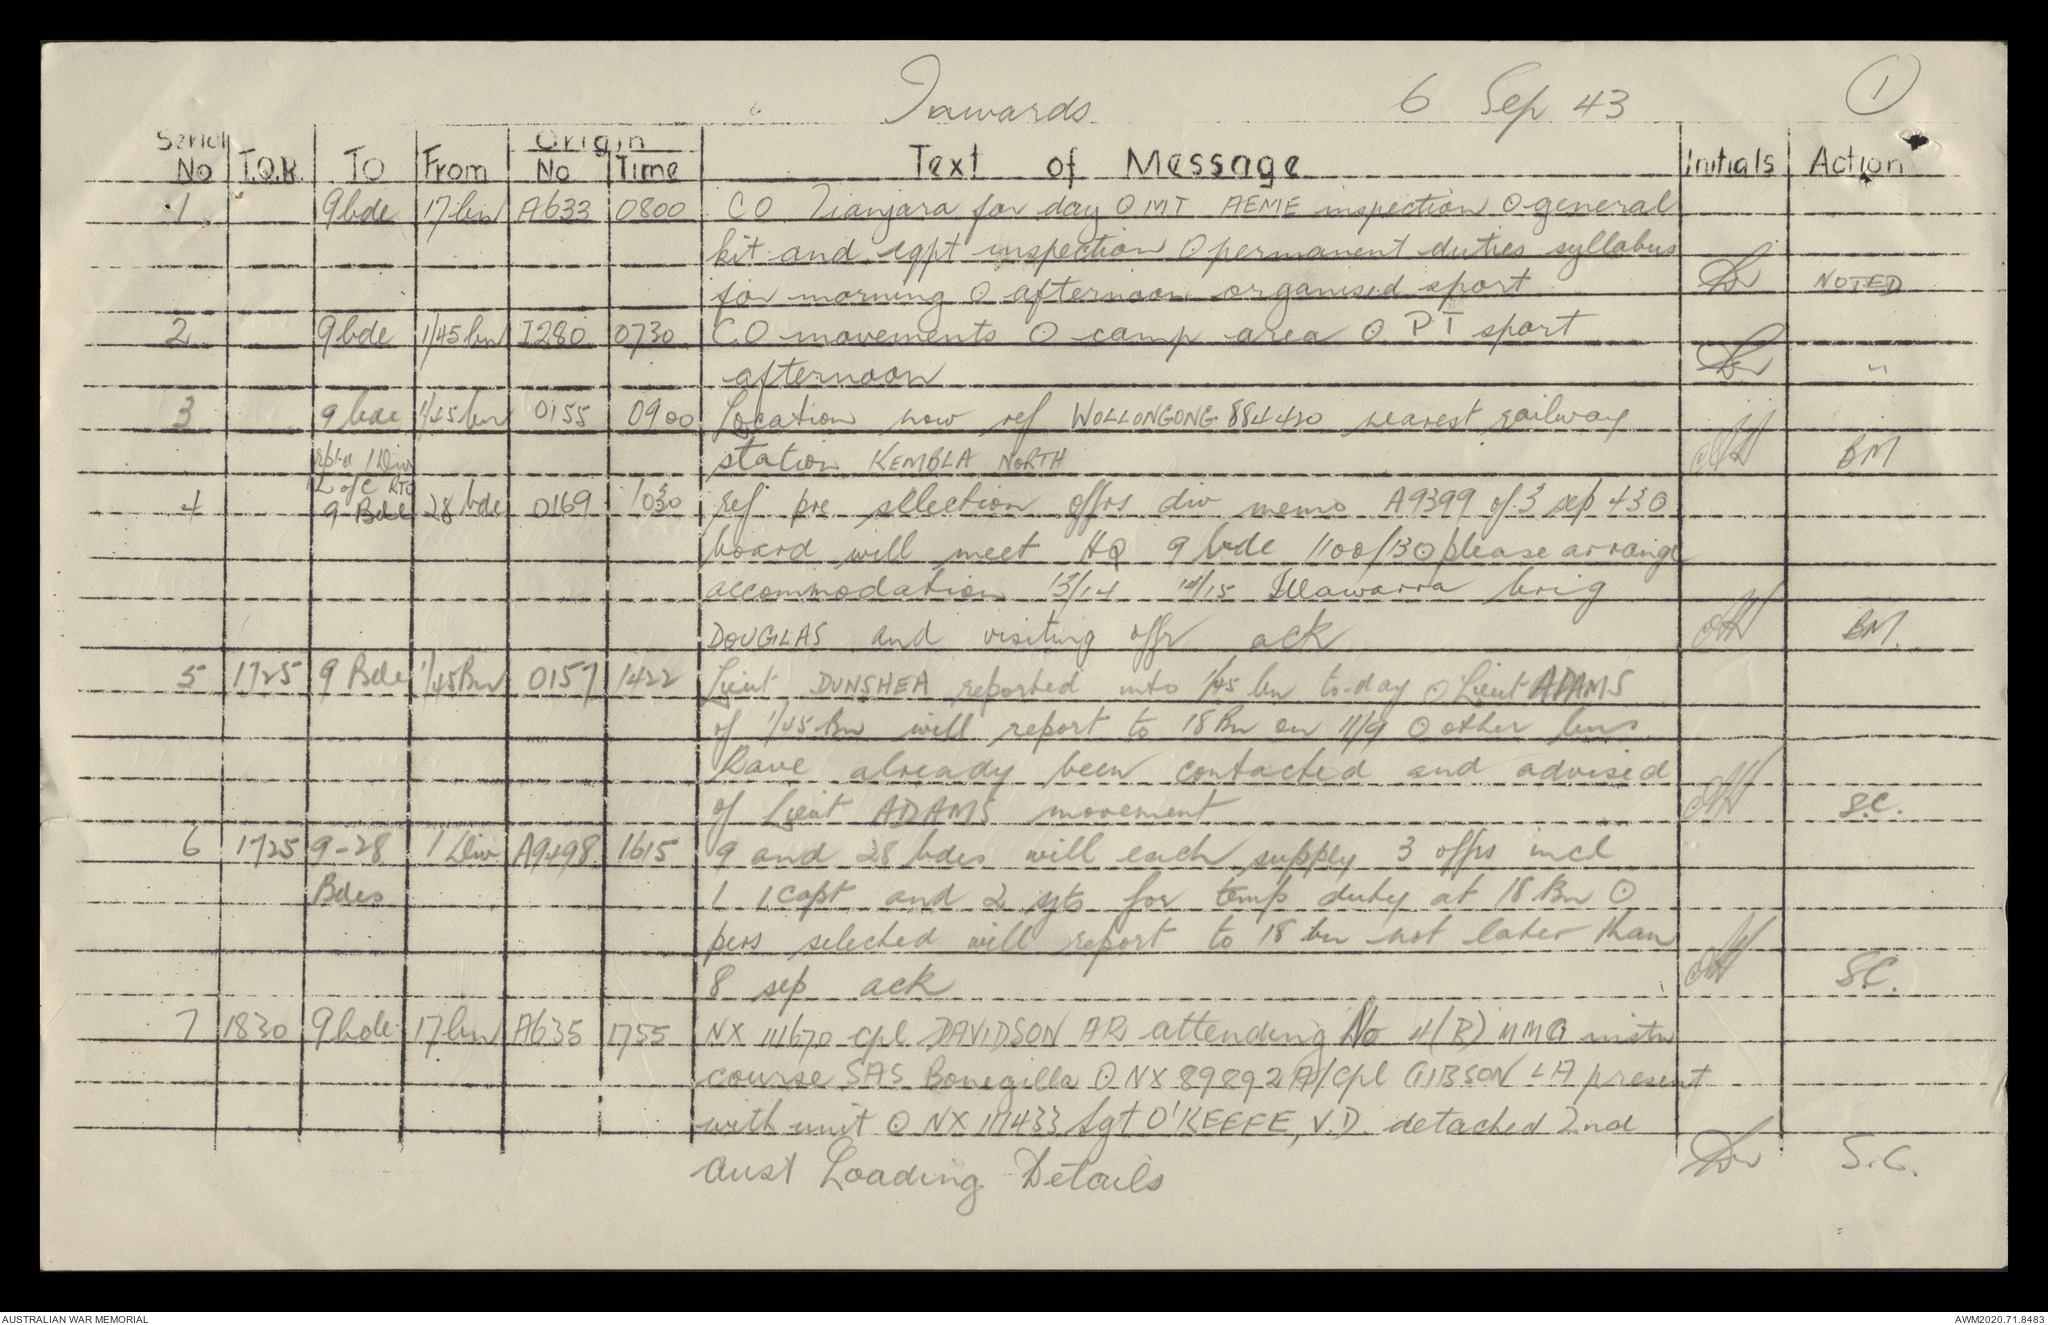 Inwards 6 Sep 43 1
Serial No T.O.R. TO From Origin No Time Text of Message Initials Action
1 9 bde 17 bn A633 0800 CO Tianjara for day ⊙ MT AEME inspection ⊙ general
kit and eqpt inspection ⊙ permanent duties syllabus
for morning ⊙ afternoon organised sport NOTED
2 9 bde 1/45 bn I280 0730 CO movements ⊙ camp area ⊙ PT sport
afternoon "
3 9 bde 1/45 bn O155 0900 Location now ref WOLLONGONG 884420 nearest railway
rptd 1 Div station KEMBLA NORTH BM
L of C RTO
4 9 Bde 28 bde O169 1030 ref pre sllection offrs div memo A9399 of 3 sep 43 ⊙
board will meet HQ 9 bde 1100/13 ⊙ please arrange
accommodation 13/14 14/15 Illawarra brig
DOUGLAS and visiting offr ack BM.
5 1725 9 Bde 1/45 Bn O157 1422 Lieut DUNSHEA reported into 1/45 bn to-day ⊙ Lieut ADAMS
of 1/45 Bn will report to 18 Bn on 11/9 ⊙ other bns
have already been contacted and advised
of Lieut ADAMS movement S.C.
6 1725 9-28 1 Div A9498 1615 9 and 28 bdes will each supply 3 offrs incl
Bdes 1 1 capt and 2 sgts for temp duty at 18 Bn ⊙
pers selected will report to 18 bn not later than
8 sep ack S.C.
7 1830 9 bde 17 bn A635 1755 NX 111670 Cpl DAVIDSON AR attending No 4(B) MMG instn
course SAS Bonegilla ⊙ NX 89892 A/Cpl GIBSON LA present
with unit ⊙ NX 111433 Sgt O'KEEFE, V.D. detached 2nd
Aust Loading Details S.C.
AUSTRALIAN WAR MEMORIAL AWM2020.71.8483